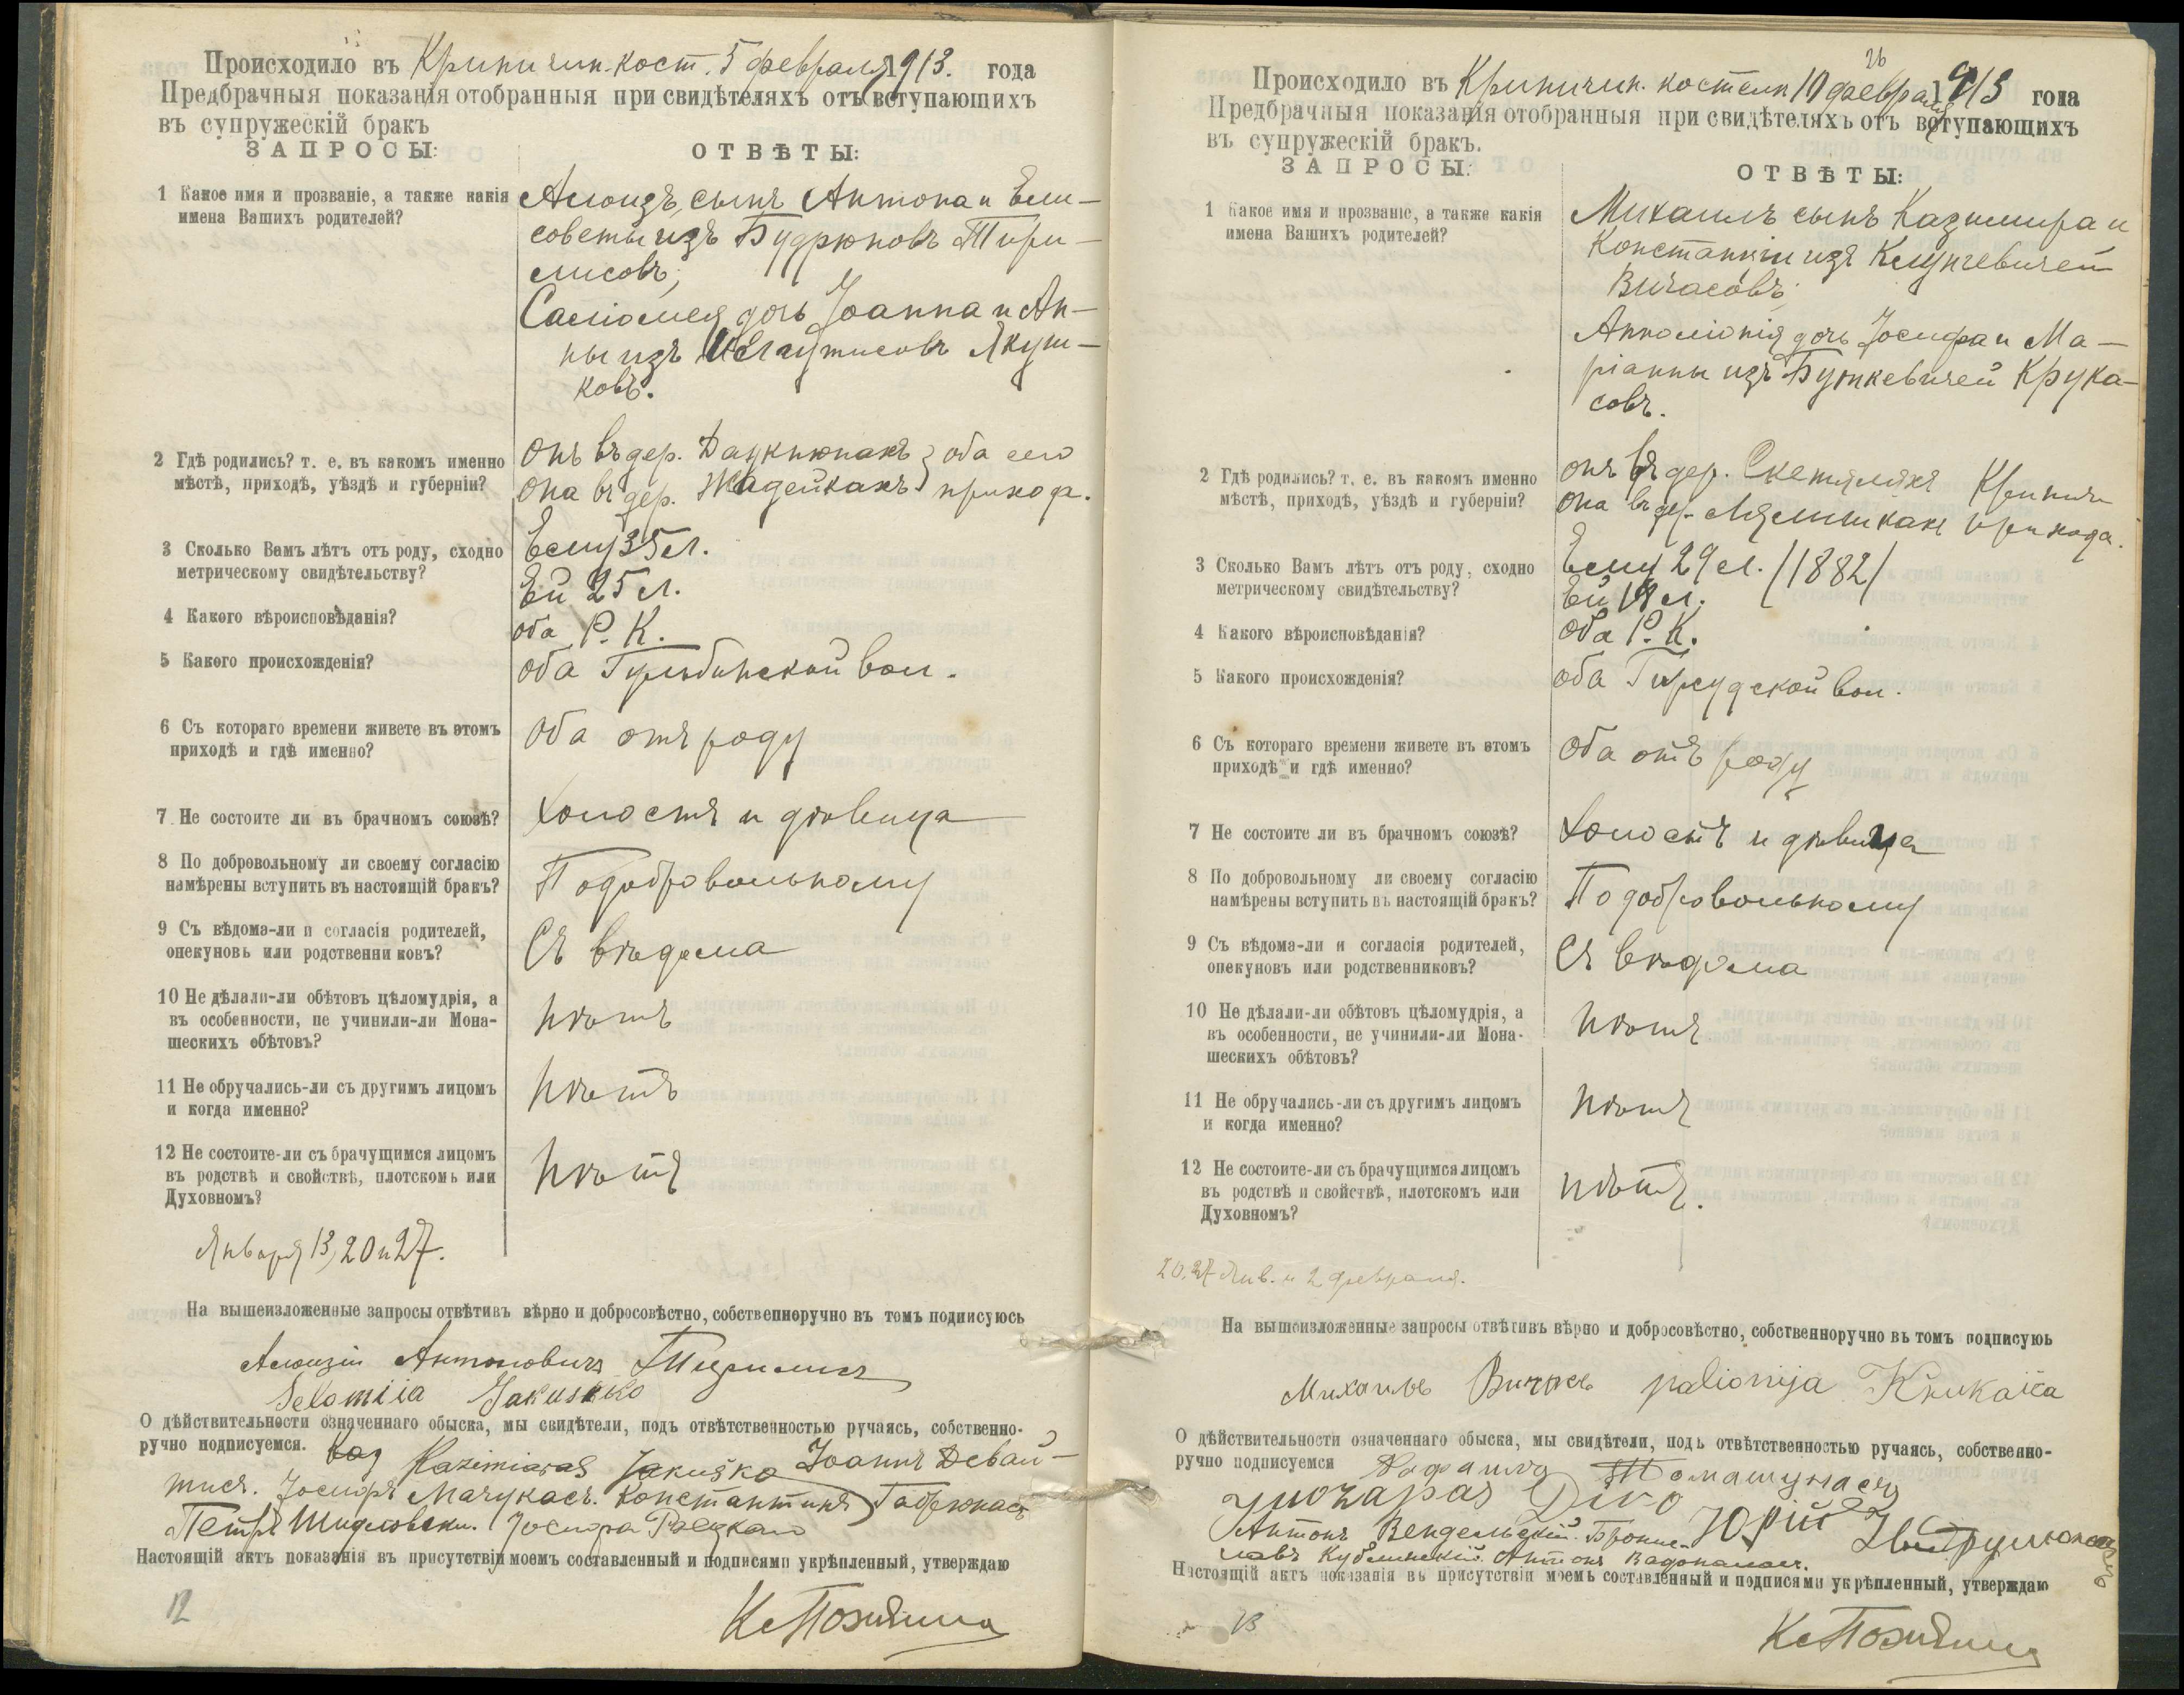 Происходило въ Криничин. кост. 5 февраля 1913. года
Предбрачныя показанія отобранныя при свидѣтеляхъ отъ вступающихъ
въ супружескій бракъ
ЗАПРОСЫ:
ОТВѢТЫ:
1 Какое имя и прозваніе, а также какія
имена Вашихъ родителей?
Алоизъ, сынъ Антона и Ели-
советы изъ Будрюновъ Тири-
лисовъ;
Саліомея дочь Іоанна и Ан-
ны изъ Якуш-
ковъ.
2 Гдѣ родились? т. е. въ какомъ именно
мѣстѣ, приходѣ, уѣздѣ и губерніи?
онъ въ дер. Даукнюнахъ } оба сего
она въ дер. Жадейкахъ } приход.
3 Сколько Вамъ лѣтъ отъ роду, сходно
метрическому свидѣтельству?
Ему 35 л.
Ей 25 л.
4 Какого вѣроисповѣданія?
оба Р. К.
5 Какого происхожденія?
оба Гульбинской вол.
6 Съ котораго времени живете въ этомъ
приходѣ и гдѣ именно?
Оба отъ роду
7 Не состоите ли въ брачномъ союзѣ?
Холостъ и дѣвица
8 По добровольному ли своему согласію
намѣрены вступить въ настоящій бракъ?
По добровольному
9 Съ вѣдома-ли и согласія родителей,
опекуновь или родственни ковъ?
Съ вѣдома
10 Не дѣлали-ли обѣтовъ цѣломудрія, а
въ особенности, не учинили-ли Мона-
шескихъ обѣтовъ?
Нѣтъ
11 Не обручались-ли съ другимъ лицомъ
и когда именно?
Нѣтъ
12 Не состоите-ли съ брачущимся лицомъ
въ родствѣ и свойствѣ, плотскомь или
Духовномъ?
Нѣтъ
Января 13, 20 и 27.
На вышеизложенные запросы отвѣтивъ вѣрно и добросовѣстно, собственноручно въ томъ подписуюсь
Алоизій Антоновичъ Тирилисъ
Selomiia Jakuskko
О дѣйствительности означеннаго обыска, мы свидѣтели, подъ отвѣтственностью ручаясь, собственно-
ручно подписуемся. Каз Kazimiaras Jakuśko Іоаннъ Девай-
тисъ. Іосифъ Мачукасъ. Константинъ Габрюнасъ
Петръ Шидловски. Іосифъ
Настоящій актъ показанія въ присутствіи моемъ составленный и подписями укрѣпленный, утверждаю
12
Происходило въ Криничин. костелѣ 10 26 февраля 1913 года
Предбрачныя показанія отобранныя при свидѣтеляхъ отъ вступающихъ
въ супружескій бракъ.
ЗАПРОСЫ:
ОТВѢТЫ:
1 Какое имя и прозваніе, а также какія
имена Вашихъ родителей?
Михаилъ сынъ Казимира и
Констанціи изъ Клунгевичей
Вичасовъ;
Апполіонія дочь Іосифа и Ма-
ріанны изъ Буткевичей Крука-
совъ.
2 Гдѣ родились? т. е. въ какомъ именно
мѣстѣ, приходѣ, уѣздѣ и губерніи?
онъ въ дер. Скетеляхъ Кринич
она въ дер. прихода.
3 Сколько Вамъ лѣтъ отъ роду, сходно
метрическому свидѣтельству?
Ему 29 л. /1882/
Ей 19 л.
4 Какого вѣроисповѣданія?
Оба Р. К.
5 Какого происхожденія?
оба Гирсудской вол.
6 Съ котораго времени живете въ этомъ
приходѣ и гдѣ именно?
Оба отъ роду
7 Не состоите ли въ брачномъ союзѣ?
Холостъ и дѣвица
8 По добровольному ли своему согласію
намѣрены вступить въ настоящій бракъ?
По добровольному
9 Съ вѣдома-ли и согласія родителей,
опекуновъ или родственниковъ?
Съ вѣдома
10 Не дѣлали-ли обѣтовъ цѣломудрія, а
въ особенности, не учинили-ли Мона-
шескихъ обѣтовъ?
Нѣтъ
11 Не обручались-ли съ другимъ лицомъ
и когда именно?
Нѣтъ
12 Не состоите-ли съ брачущимся лицомъ
въ родствѣ и свойствѣ, плотскомъ или
Духовномъ?
Нѣтъ.
20, 27 Янв. и 2 февраля.
На вышеизложенные запросы отвѣтивъ вѣрно и добросовѣстно, собственноручно въ томъ подписуюь
Михаилъ Вичасъ palionija Krukaića
О дѣйствительности означеннаго обыска, мы свидѣтели, подь отвѣтственностью ручаясь, собственно-
ручно подписуемся Рафаилъ Томашунасъ
Juozapas Divo Юрій
Антонъ Вендельскій. Брони-
лавъ Кублинскій. Антонъ Вадопаласъ.
Настоящій актъ показанія въ присутствіи моемь составленный и подписями укрѣпленный, утверждаю
13